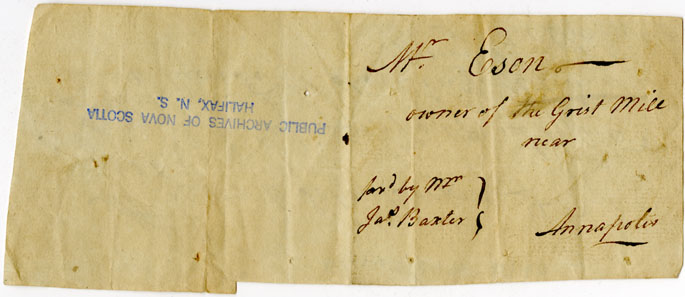 Mr. Eson
owner of the Grist Mill
near
for'd by Mr
Jas. Baxter
Annapolis
PUBLIC ARCHIVES OF NOVA SCOTIA
HALIFAX, N. S.